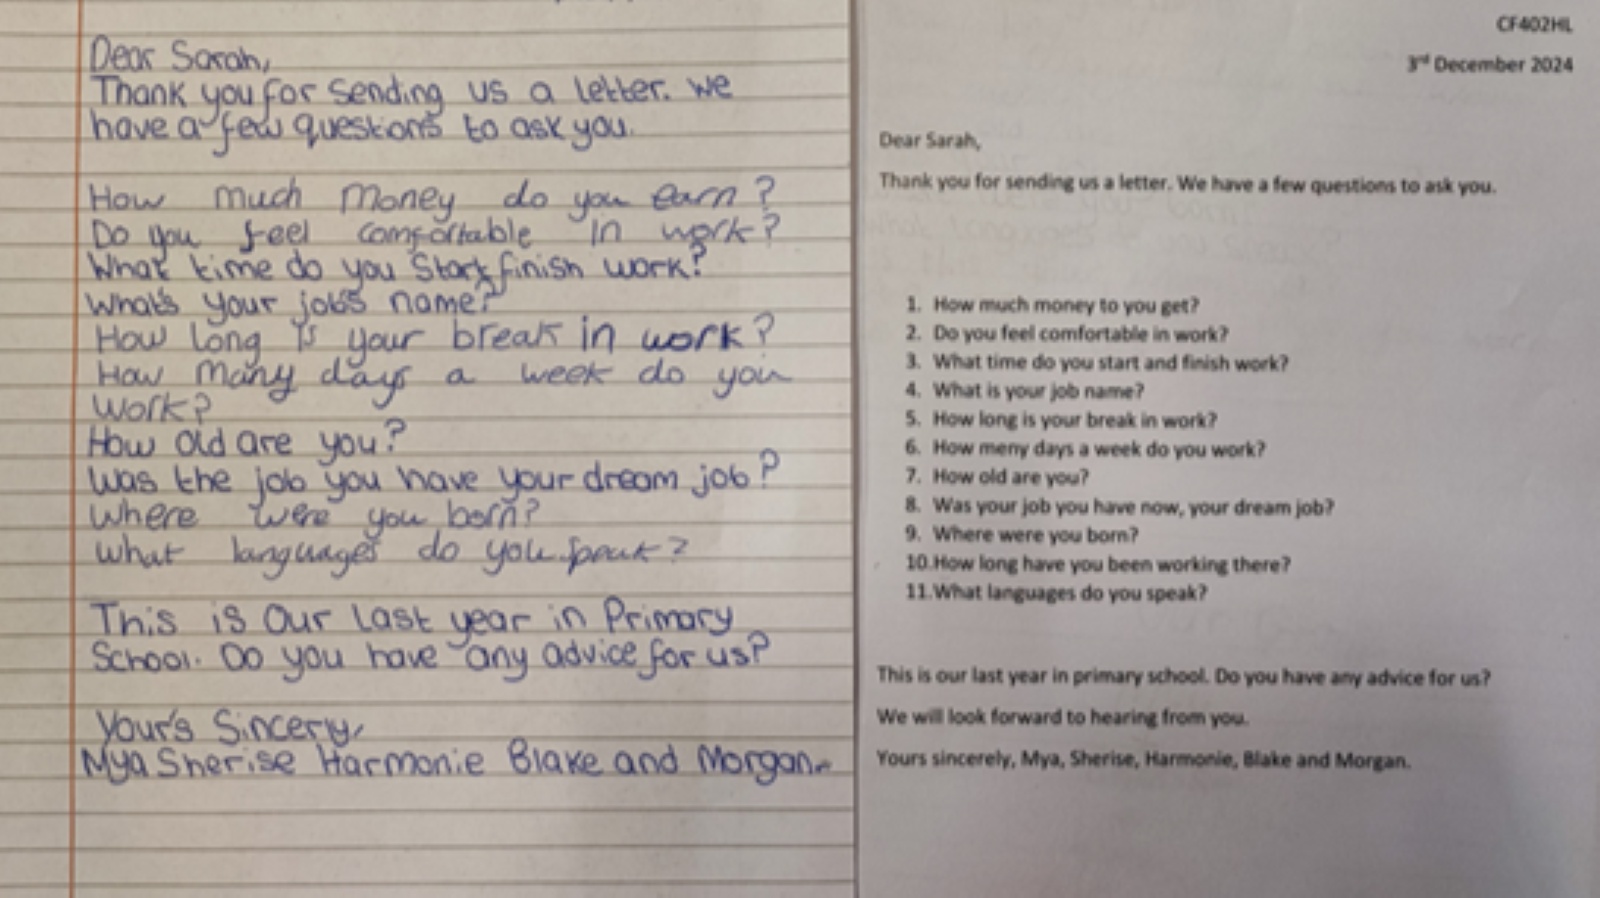 Dear Sarah,
Thank you for sending us a letter. We
have a few questions to ask you.
How much money do you earn?
Do you feel comfortable in work?
What time do you Start finish work?
What's your job's name?
How long is your break in work?
How many days a week do you
work?
How old are you?
Was the job you have your dream job?
Where were you born?
What languages do you speak?
This is our last year in Primary
School. Do you have any advice for us?
Your's Sincerly,
Mya Sherise Harmonie Blake and Morgan.
CF402HL
3rd December 2024
Dear Sarah,
Thank you for sending us a letter. We have a few questions to ask you.
1. How much money to you get?
2. Do you feel comfortable in work?
3. What time do you start and finish work?
4. What is your job name?
5. How long is your break in work?
6. How meny days a week do you work?
7. How old are you?
8. Was your job you have now, your dream job?
9. Where were you born?
10.How long have you been working there?
11.What languages do you speak?
This is our last year in primary school. Do you have any advice for us?
We will look forward to hearing from you.
Yours sincerely, Mya, Sherise, Harmonie, Blake and Morgan.